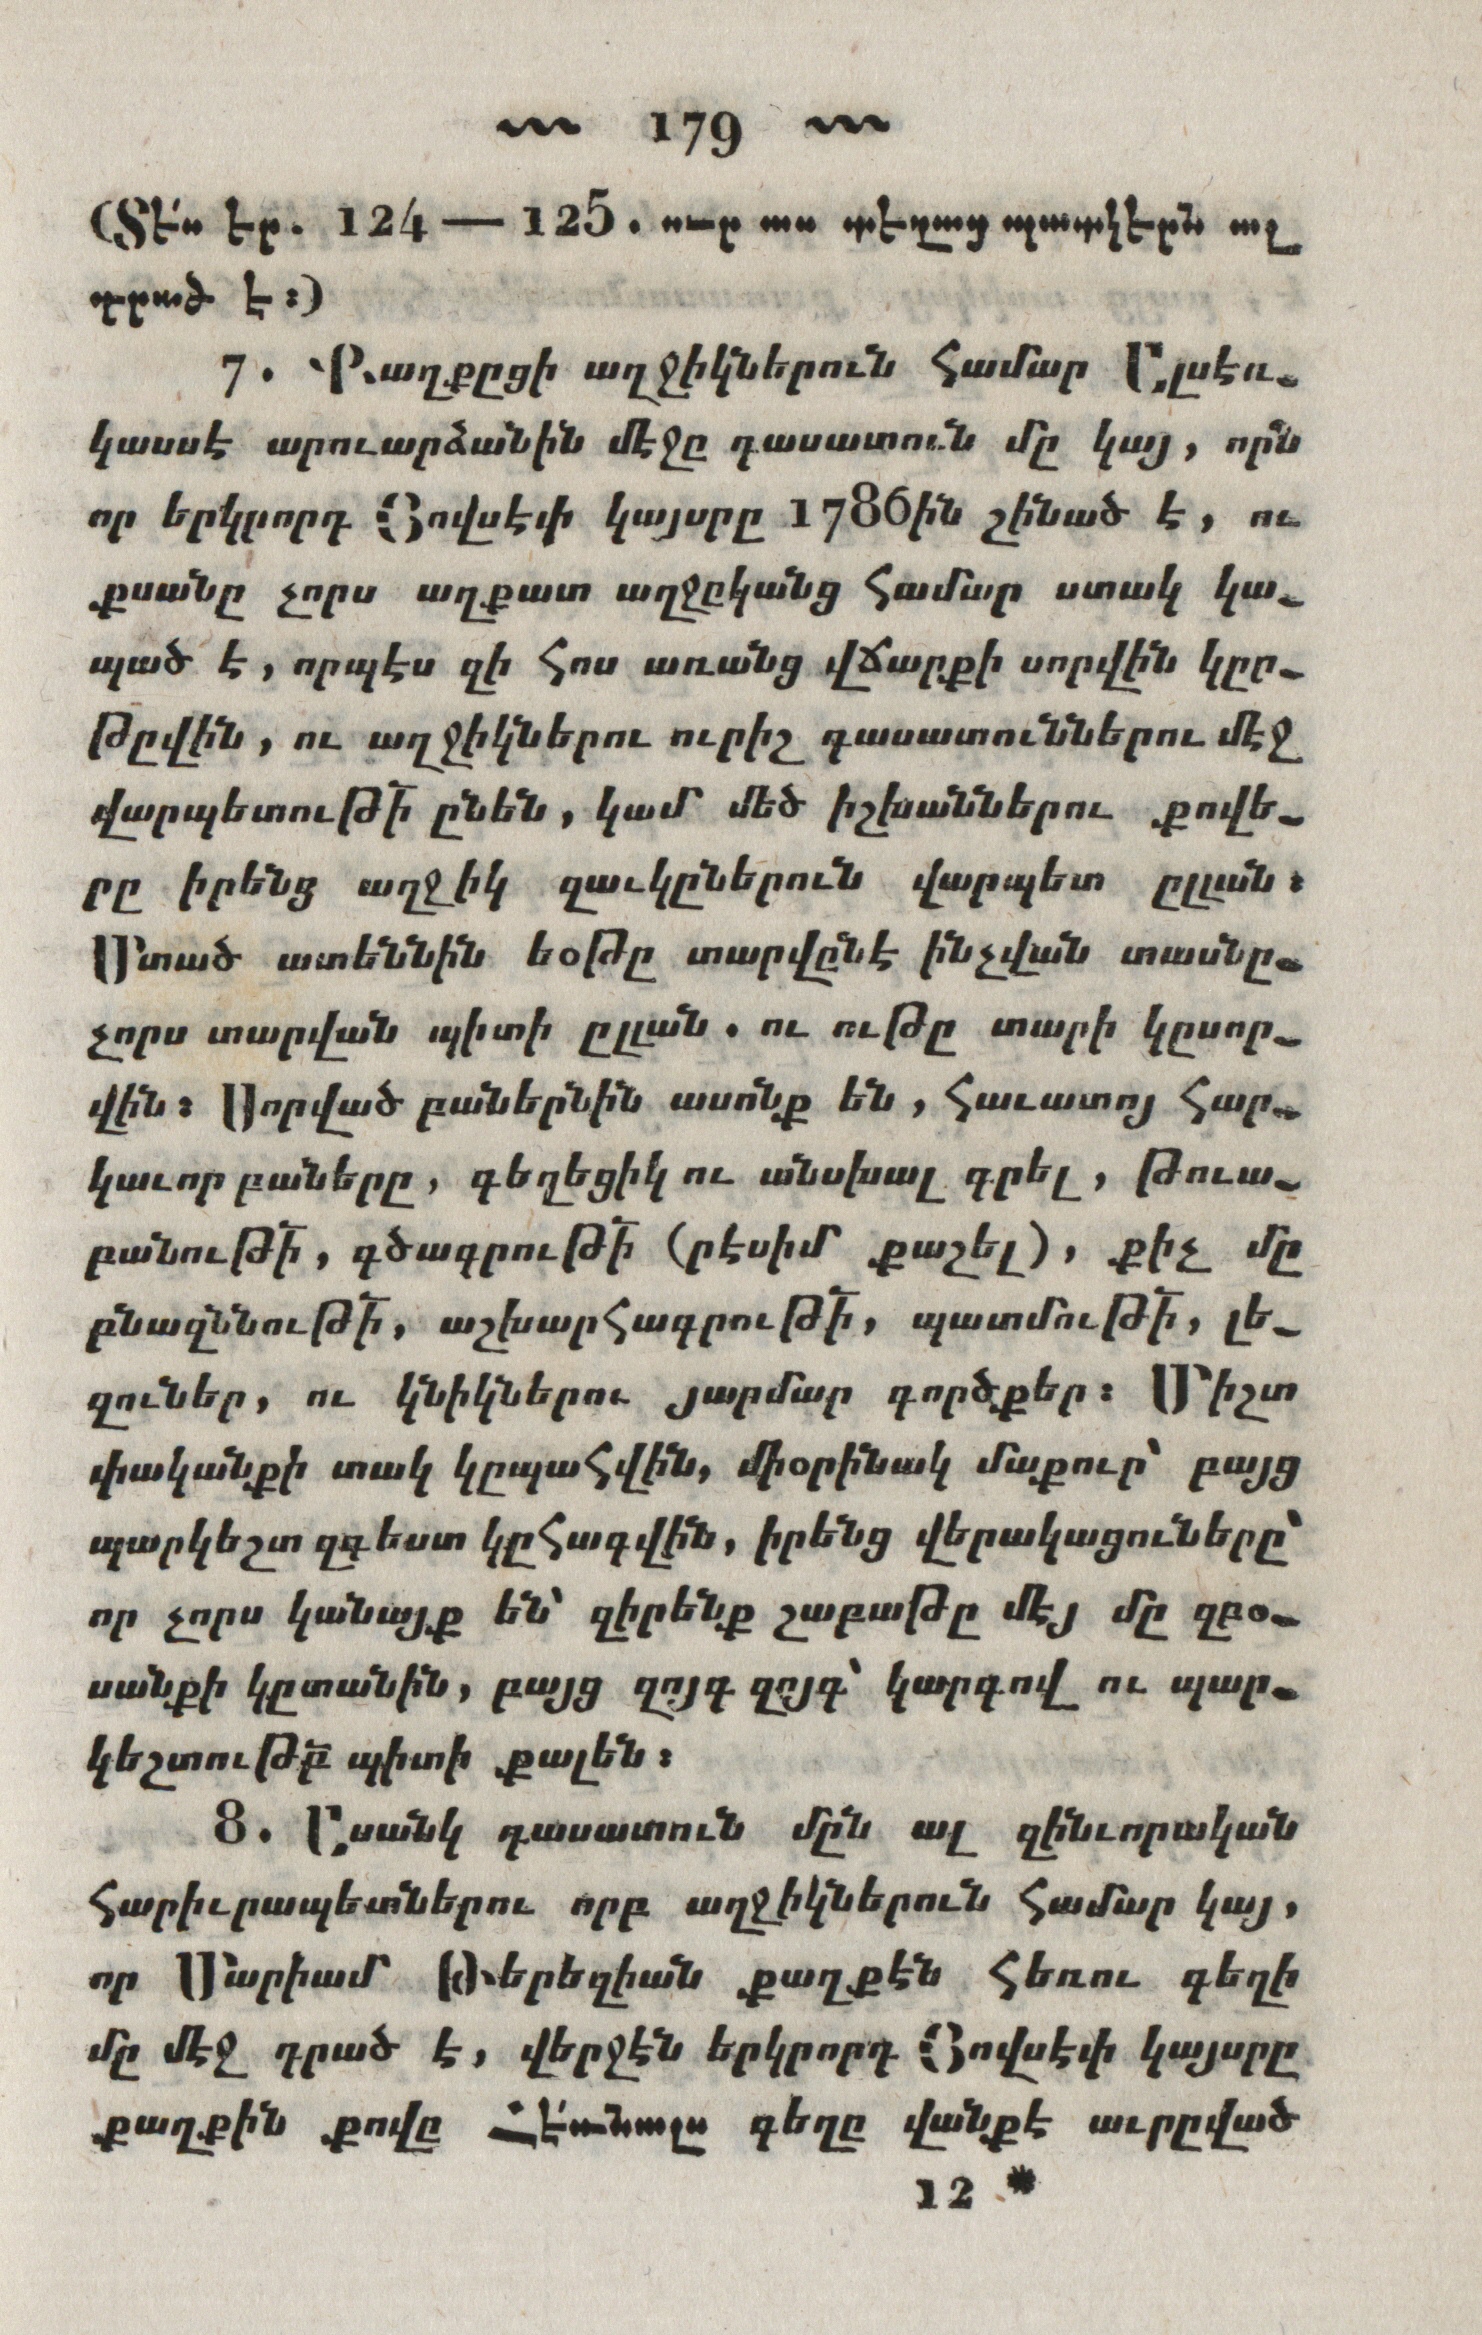 179
(Տէ՛ս էր. 124 — 125. ուր աս տէղաց պատկէրն ալ
դրած է։)
7. Քաղքըցի աղջիկներուն համար Ըլսէռ֊
կասսէ արուարձանին մէջը դասատուն մը կայ, որն
որ երկրորդ Յովսէփ կայսրը 1786ին շինած է, ու
քսանը չորս աղքատ աղջըկանց համար ստակ կա֊
պած է, որպէս զի հոս առանց վճարքի սորվին կըր֊
թըվին, ու աղջիկներու ուրիշ դասատուններու մէջ
վարպետութի՛ ընեն, կամ մեծ իշխաններու քովե֊
րը իրենց աղջիկ զաւկըներուն վարպետ ըլլան։
Մտած ատեննին եօթը տարվընէ ինչվան տասնը֊
չորս տարվան պիտի ըլլան. ու ութը տարի կըսոր֊
վին։ Սորված բաներնին ասոնք են, հաւատոյ հար֊
կաւոր բաները, գեղեցիկ ու անսխալ գրել, թուա֊
բանութի՛, գծագրութի՛ (րէսիմ քաշել), քիչ մը
բնազննութի՛, աշխարհագրութի՛, պատմութի՛, լե֊
զուներ, ու կնիկներու յարմար գործքեր։ Միշտ
փականքի տակ կըպահվին, միօրինակ մաքուր՝ բայց
պարկեշտ զգեստ կըհագվին, իրենց վերակացուները՝
որ չորս կանայք են՝ զիրենք շաբաթը մէյ մը զբօ֊
սանքի կըտանին, բայց զոյգ զոյգ՝ կարգով ու պար֊
կեշտութբ՛ պիտի քալեն։
8. Ըսանկ դասատուն մըն ալ զինւորական
հարիւրապետներու որբ աղջիկներուն համար կայ,
որ Մարիամ Թերեզիան քաղքէն հեռու գեղի
մը մէջ դրած է, վերջէն երկրորդ Յովսէփ կայսրը
քաղքին քովը Հէռնալս գեղը վանքէ աւրըված
12 *